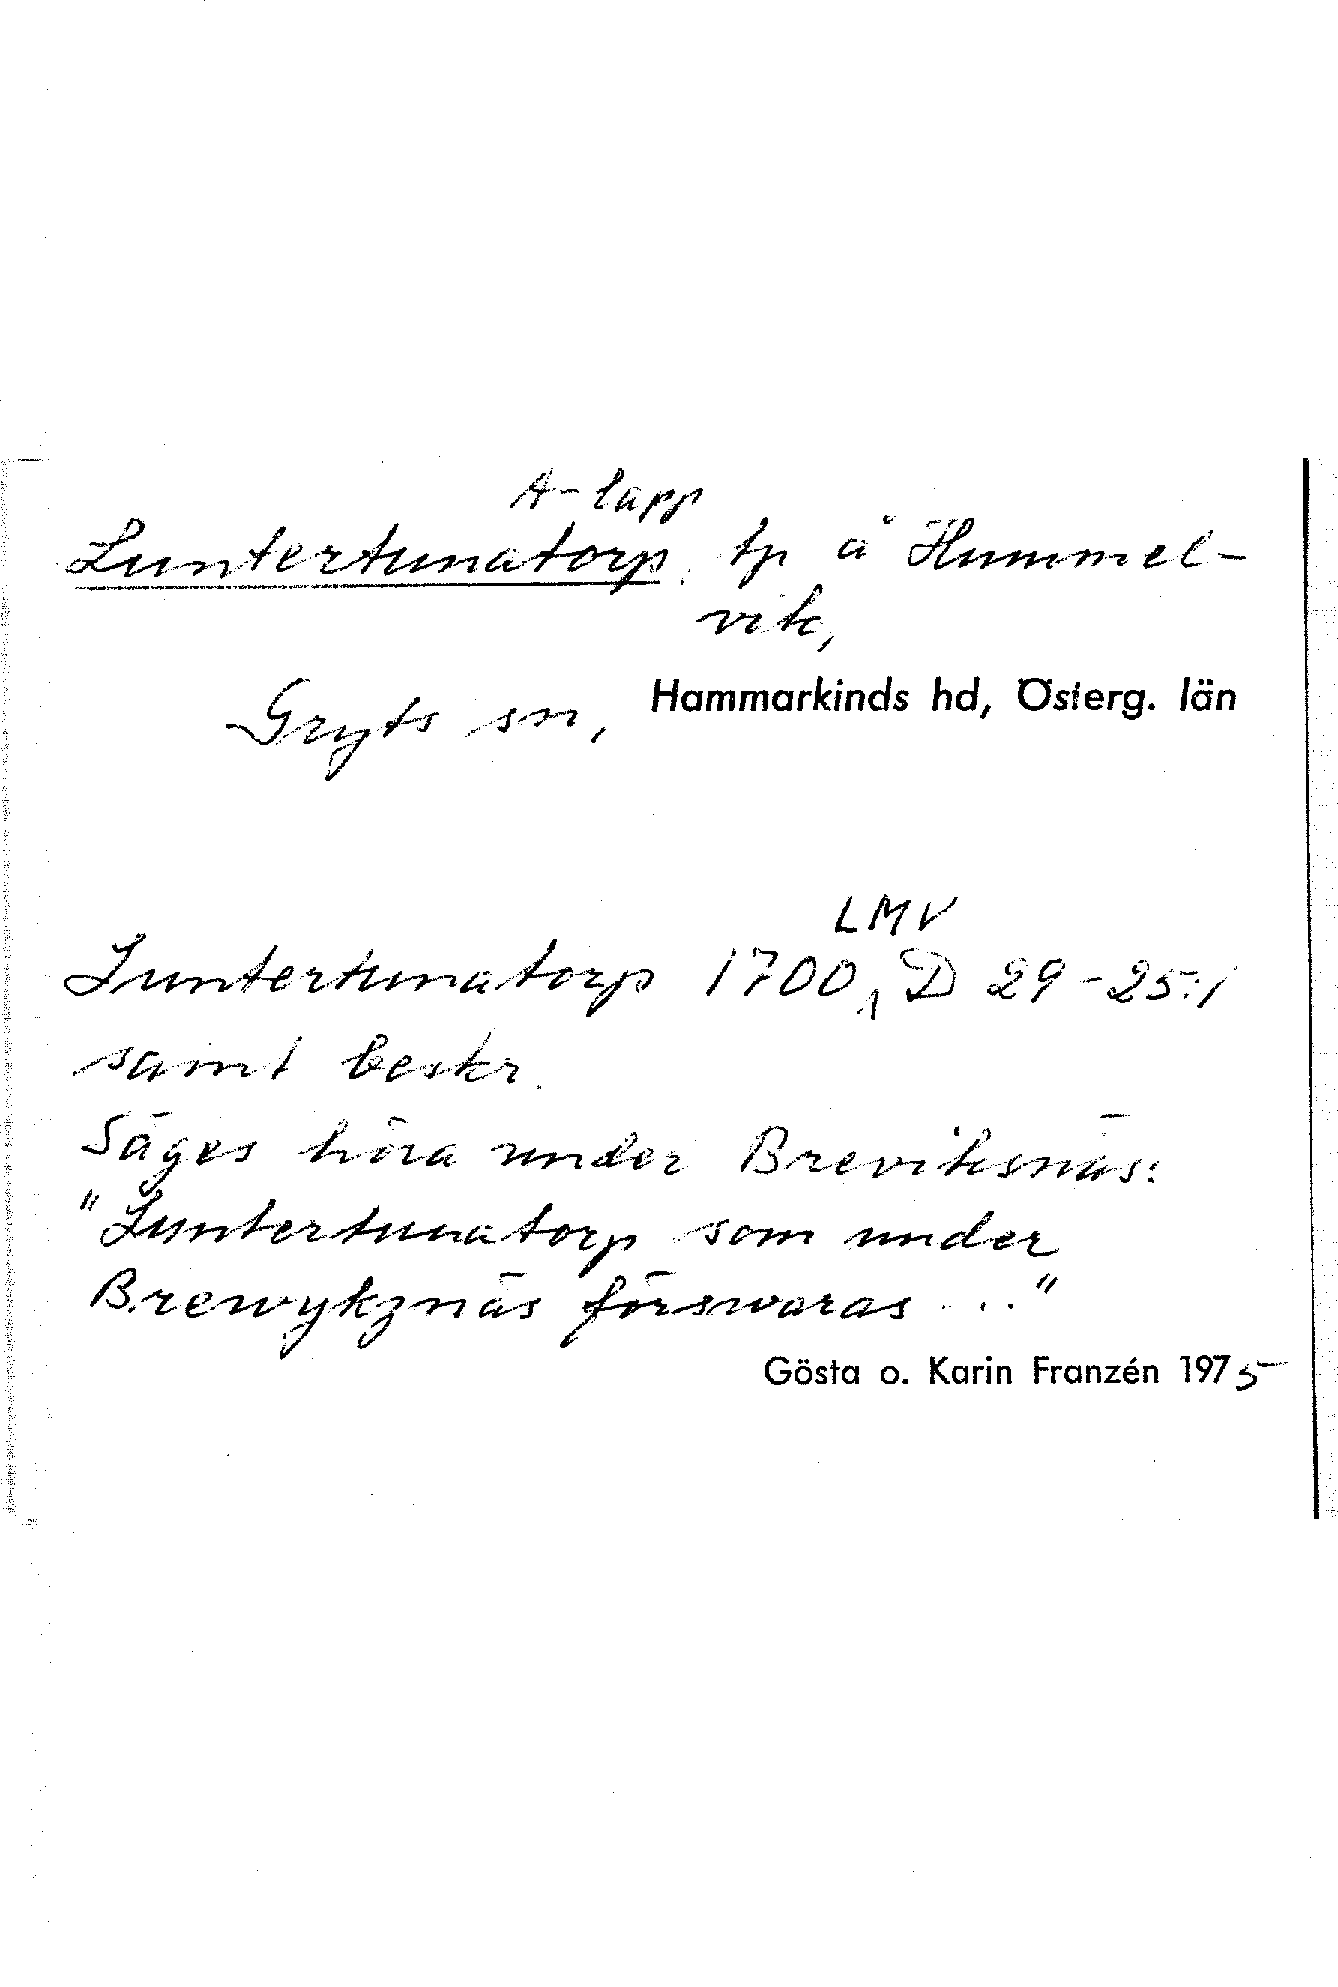 A-lapp
Luntertunatorp, tp å Hummel-
vik,
Gryts sn, Hammarkinds hd, Österg. län
LMV
Luntertunatorp 1700, D 29-25:1
samt beskr.
Säges höra under Breviksnäs:
"Luntertunatorp som under
Brewykznäs förswaras ..."
Gösta o. Karin Franzén 1975